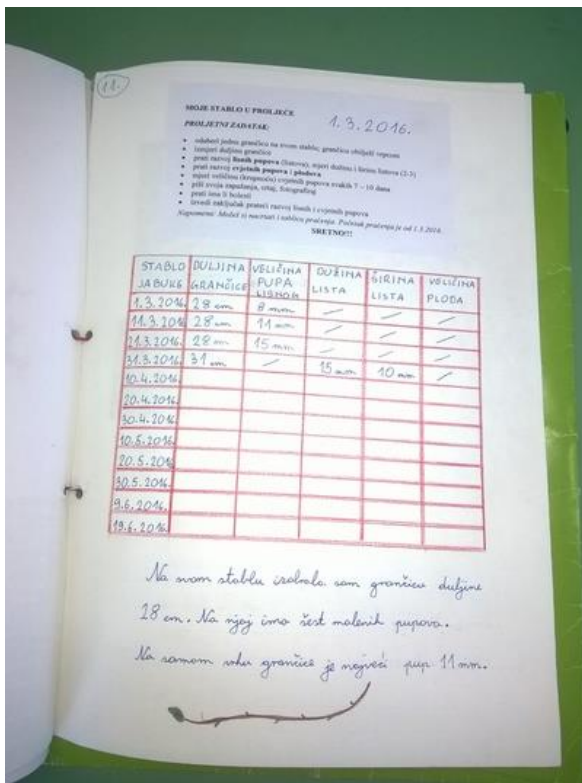 11.
MOJE STABLO U PROLJEĆE
1. 3. 2016.
PROLJETNI ZADATAK:
odaberi jednu grančicu na svom stablu, grančicu obilježi vrpcom
izmjeri duljinu grančice
prati razvoj lisnih pupova (listova), mjeri dužinu i širinu listova (2-3)
prati razvoj cvjetnih pupova i plodova
mjeri veličinu (krupnoću) cvjetnih pupova svakih 7 – 10 dana
piši svoja zapažanja, crtaj, fotografiraj
prati ima li bolesti
izvedi zaključak prateći razvoj lisnih i cvjetnih pupova
Napomena: Možeš si nacrtati i tablicu praćenja. Početak praćenja je od 1.3.2016.
SRETNO!!!
STABLO JABUKE DULJINA GRANČICE VELIČINA PUPA LISNOG DUŽINA LISTA ŠIRINA LISTA VELIČINA PLODA
1.3.2016. 28 cm 8 mm / / /
11.3.2016 28 cm 11 mm / / /
21.3.2016. 28 cm 15 mm / / /
31.3.2016. 31 cm / 15 mm 10 mm /
10.4.2016.
20.4.2016.
30.4.2016.
10.5.2016.
20.5.2016
30.5.2016.
9.6.2016.
19.6.2016.
Na svom stablu izabrala sam grančicu duljine
28 cm. Na njoj ima šest malenih pupova.
Na samom vrhu grančice je najveći pup 11 mm.